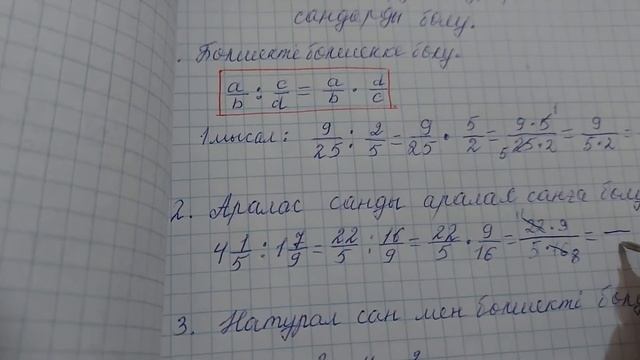 сандарды бөлу.
. Бөлшекті бөлшекке бөлу.
a/b : c/d = a/b · d/c
1 мысал: 9/25 : 2/5 = 9/25 · 5/2 = 9·5/25·2 = 9/5·2 =
2. Аралас санды аралас санға бөлу
4 1/5 : 1 7/9 = 22/5 : 16/9 = 22/5 · 9/16 = 22·9/5·16 8 =
3. Натурал сан мен бөлшекті бөлу